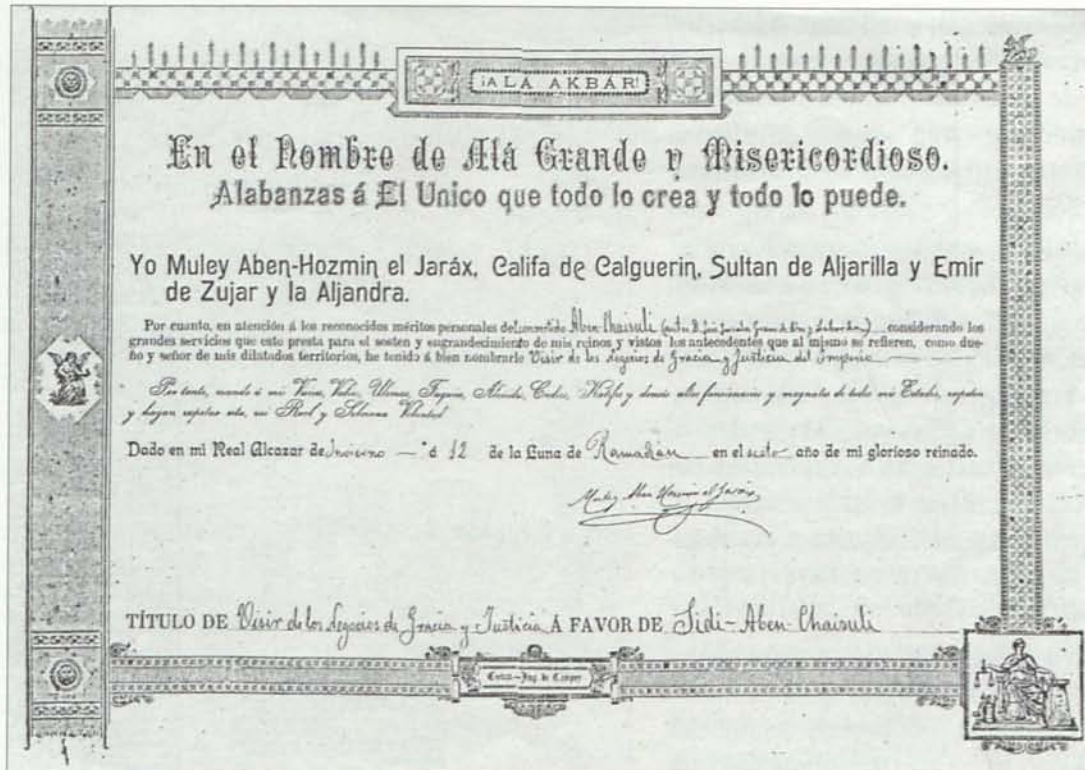 ¡ALÁ AKBAR!
En el Nombre de Alá Grande y Misericordioso.
Alabanzas á El Unico que todo lo crea y todo lo puede.
Yo Muley Aben-Hozmin el Jaráx, Califa de Calguerin, Sultan de Aljarilla y Emir
de Zujar y la Aljandra.
Por cuanto, en atención á los reconocidos méritos personales del Aben-Chaisuli considerando los
grandes servicios que este presta para el sosten y engrandecimiento de mis reinos y vistos los antecedentes que al mismo se refieren, como due-
ño y señor de mis dilatados territorios, he tenido á bien nombrarle Visir de los Negocios de Gracia y Justicia del Imperio
Por tanto, mando á mis Ulemas, Kadíes y demás altos funcionarios y magnates de todos mis Estados, respeten
y hagan respetar esta, mi Real y Voluntad
Dado en mi Real Alcazar de á 12 de la Luna de Ramadán en el sexto año de mi glorioso reinado.
Muley Aben Hozmin el Jaráx
TÍTULO DE Visir de los Negocios de Gracia y Justicia Á FAVOR DE Sidi-Aben-Chaisuli